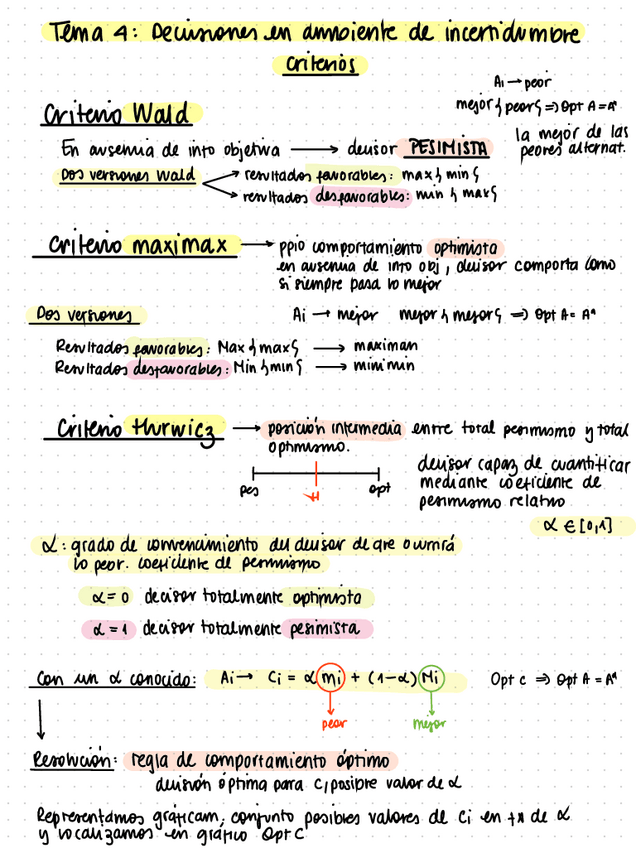 Tema 4: Decisiones en ambiente de incertidumbre
criterios
Ai → peor
mejor { peor } ⇒ Opt A = A*
la mejor de las
peores alternat.
Criterio Wald
En ausencia de info objetiva → decisor PESIMISTA
Dos versiones Wald
resultados favorables: max { min }
resultados desfavorables: min { max }
Criterio maximax → ppio comportamiento optimista
en ausencia de info obj, decisor comporta como
si siempre pasa lo mejor
Dos versiones
Ai → mejor mejor { mejor } ⇒ Opt A = A*
Resultados favorables: Max { max } → maximax
Resultados desfavorables: Min { min } → minimin
Criterio Hurwicz → posición intermedia entre total pesimismo y total
optimismo.
pes H opt
decisor capaz de cuantificar
mediante coeficiente de
pesimismo relativo
α ∈ [0,1]
α: grado de convencimiento del decisor de que ocurrirá
lo peor. coeficiente de pesimismo
α = 0 decisor totalmente optimista
α = 1 decisor totalmente pesimista
Con un α conocido: Ai → Ci = α mi + (1-α) Mi Opt C ⇒ Opt A = A*
peor mejor
Resolución: regla de comportamiento óptimo
decisión óptima para c/posible valor de α
Representamos gráficam. conjunto posibles valores de Ci en fx de α
y localizamos en gráfico Opt C